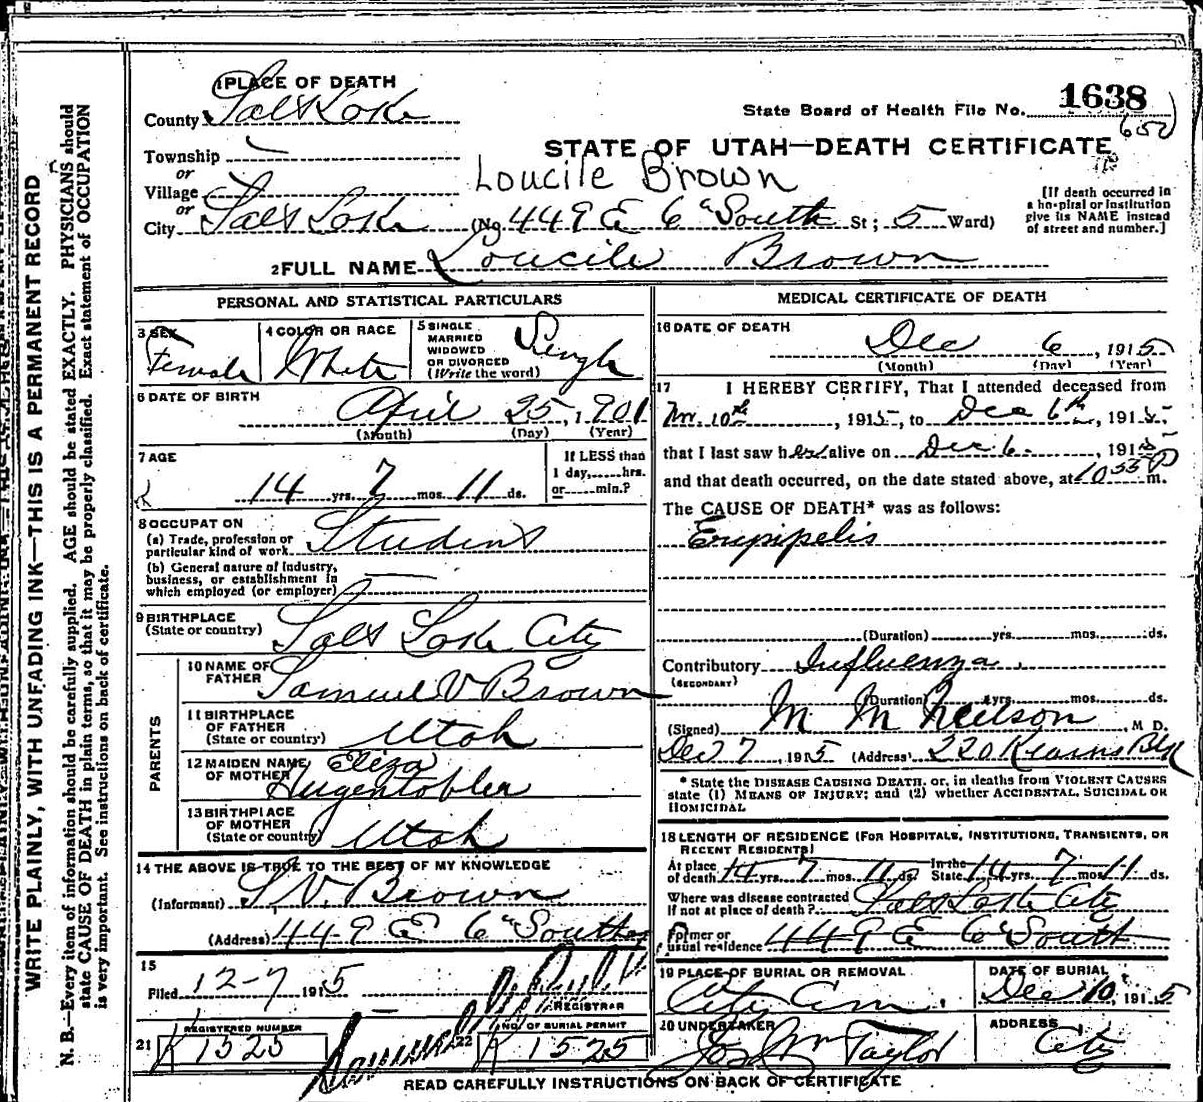 1 PLACE OF DEATH
County Salt Lake
State Board of Health File No. 1638
652
Township
or
Village
or
City Salt Lake
STATE OF UTAH—DEATH CERTIFICATE
Loucile Brown
(No. 449 E 6" South St; 5 Ward)
[If death occurred in a hospital or institution give its NAME instead of street and number.]
2 FULL NAME Loucile Brown
PERSONAL AND STATISTICAL PARTICULARS
3 SEX Female
4 COLOR OR RACE White
5 SINGLE MARRIED WIDOWED OR DIVORCED (Write the word) Single
6 DATE OF BIRTH April 25, 1901
(Month) (Day) (Year)
7 AGE 14 yrs. 7 mos. 11 ds.
If LESS than 1 day,......hrs. or......min.?
8 OCCUPATION
(a) Trade, profession or particular kind of work Student
(b) General nature of industry, business, or establishment in which employed (or employer)
9 BIRTHPLACE (State or country) Salt Lake City
PARENTS
10 NAME OF FATHER Samuel V Brown
11 BIRTHPLACE OF FATHER (State or country) Utah
12 MAIDEN NAME OF MOTHER Eliza Hugentobler
13 BIRTHPLACE OF MOTHER (State or country) Utah
14 THE ABOVE IS TRUE TO THE BEST OF MY KNOWLEDGE
(Informant) S.V. Brown
(Address) 449 E 6" South
15
Filed 12-7 1915
REGISTRAR
21 REGISTERED NUMBER K 1525
22 NO. OF BURIAL PERMIT K 1525
MEDICAL CERTIFICATE OF DEATH
16 DATE OF DEATH Dec 6, 1915
(Month) (Day) (Year)
17 I HEREBY CERTIFY, That I attended deceased from
Nov. 10th, 1915, to Dec 6th, 1915,
that I last saw her alive on Dec 6. 1915
and that death occurred, on the date stated above, at 10 55 P m.
The CAUSE OF DEATH* was as follows:
Erysipelis
(Duration) yrs. mos. ds.
Contributory Influenza.
(SECONDARY)
(Duration) yrs. mos. ds.
(Signed) M M Neilson M D.
Dec 7, 1915 (Address) 220 Kearns Blk
* State the DISEASE CAUSING DEATH, or, in deaths from VIOLENT CAUSES
state (1) MEANS OF INJURY; and (2) whether ACCIDENTAL, SUICIDAL OR
HOMICIDAL
18 LENGTH OF RESIDENCE (FOR HOSPITALS, INSTITUTIONS, TRANSIENTS, OR
RECENT RESIDENTS)
At place of death 14 yrs. 7 mos. 11 ds. In the State 14 yrs. 7 mos. 11 ds.
Where was disease contracted if not at place of death? Salt Lake City
Former or usual residence 449 E 6" South
19 PLACE OF BURIAL OR REMOVAL City Cem.
DATE OF BURIAL Dec 10, 1915
20 UNDERTAKER Jos Wm Taylor
ADDRESS City
READ CAREFULLY INSTRUCTIONS ON BACK OF CERTIFICATE
WRITE PLAINLY, WITH UNFADING INK—THIS IS A PERMANENT RECORD
N. B.—Every item of information should be carefully supplied. AGE should be stated EXACTLY. PHYSICIANS should
state CAUSE OF DEATH in plain terms, so that it may be properly classified. Exact statement of OCCUPATION
is very important. See instructions on back of certificate.